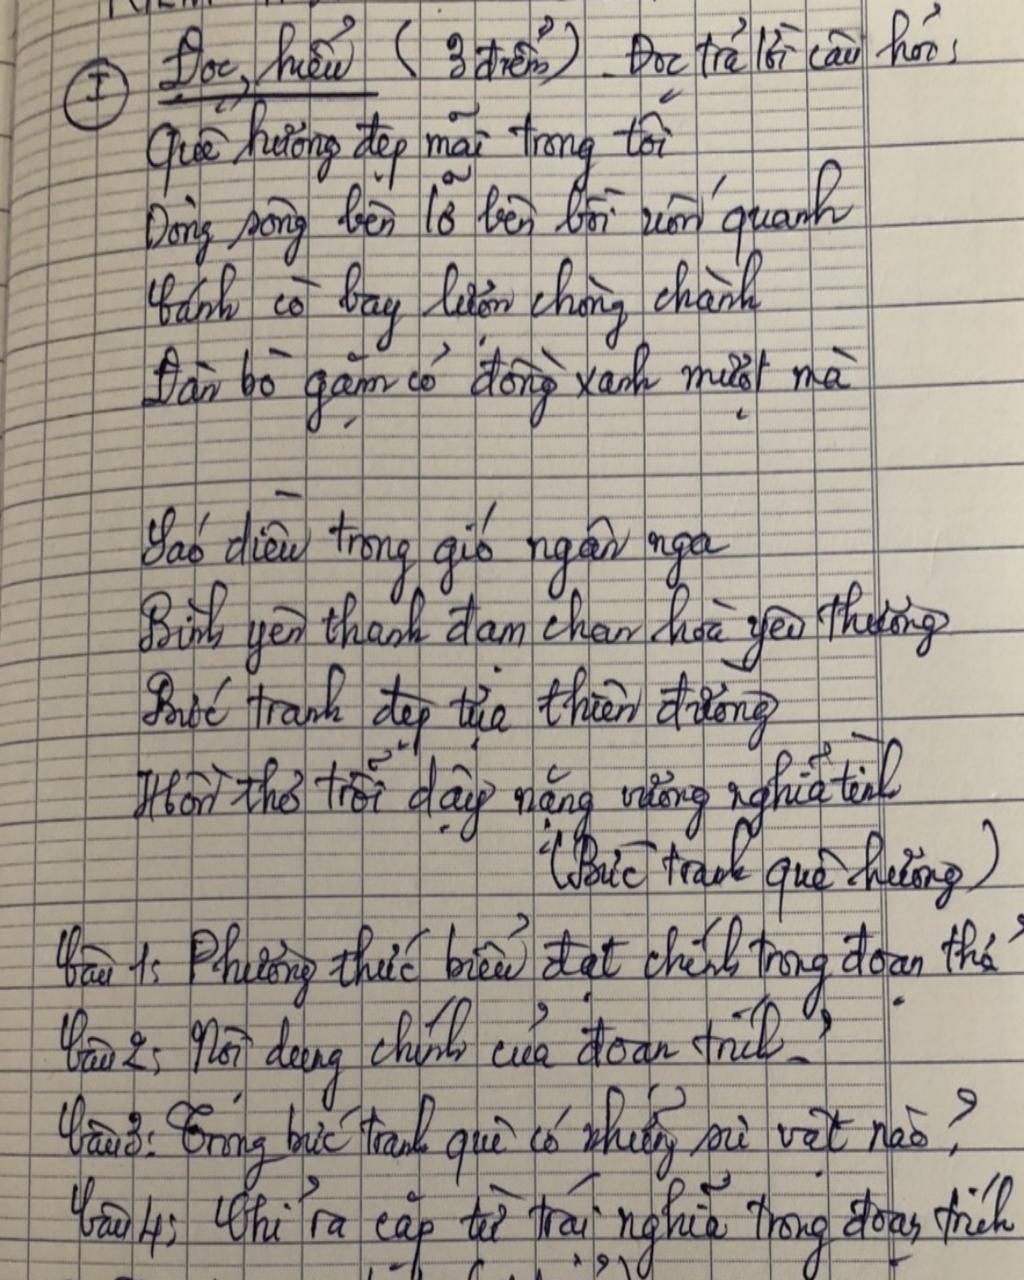 I Đọc, hiểu ( 3 điểm) - Đọc trả lời câu hỏi:
Quê hương đẹp mãi trong tôi
Dòng sông bên lở bên bồi uốn quanh
Cánh cò bay lượn chòng chành
Đàn bò gặm cỏ đồng xanh mượt mà
Sáo diều trong gió ngân nga
Bình yên thanh đạm chan hoà yêu thương
Bức tranh đẹp tựa thiên đường
Hồn thơ trỗi dậy nặng vương nghĩa tình
(Bức tranh quê hương)
Câu 1: Phương thức biểu đạt chính trong đoạn thơ?
Câu 2: Nội dung chính của đoạn trích?
Câu 3: Trong bức tranh quê có những sự vật nào?
Câu 4: Chỉ ra cặp từ trái nghĩa trong đoạn trích